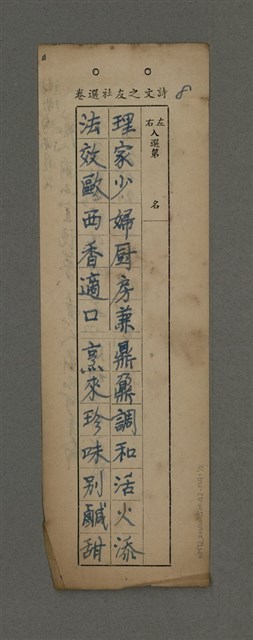 詩文之友社選卷
8
左右入選第 名
理家少婦厨房兼鼎鼐調和活火添
法效歐西香適口烹來珍味別鹹甜